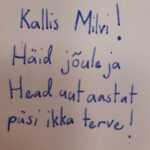 Kallis Milvi!
Häid jõule ja
Head uut aastat
püsi ikka terve!